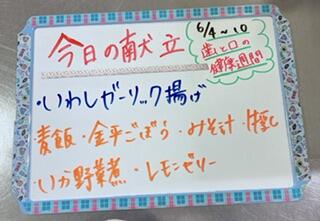 今日の献立
6/4~10
歯と口の
健康週間
・いわしガーリック揚げ
麦飯・金平ごぼう・みそ汁・牛乳
・いか野菜煮・レモンゼリー